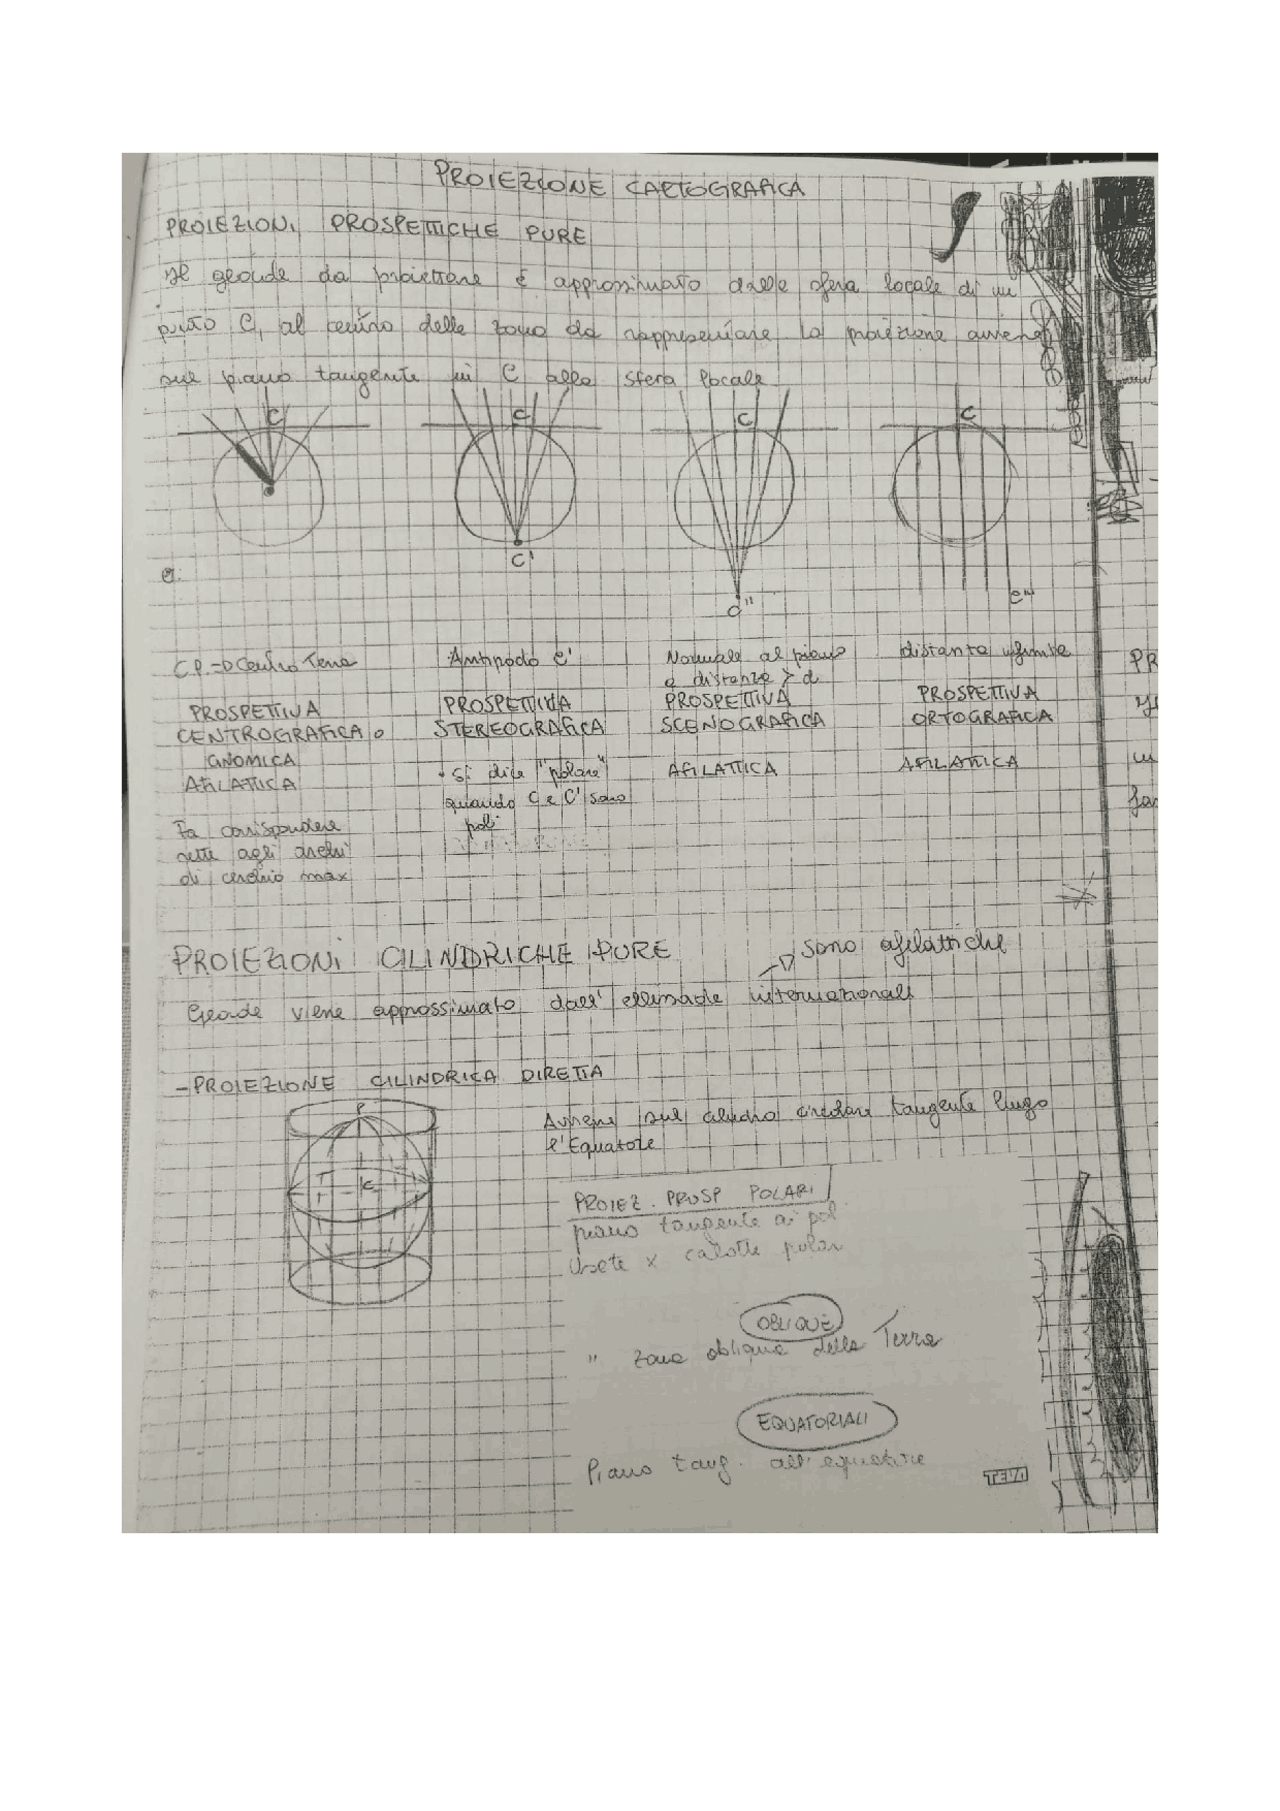 PROIEZIONE CARTOGRAFICA
PROIEZIONI PROSPETTICHE PURE
Il geoide da proiettare è approssimato dalla sfera locale di un
punto C, al centro della zona da rappresentare la proiezione avviene
sul piano tangente in C alla sfera locale
C C C C
C'
C" C'''
C.P.=D Centro Terra
PROSPETTIVA
CENTROGRAFICA o
GNOMICA
AFILATTICA
Fa corrispondere
rette agli archi
di cerchio max
Antipodo C'
PROSPETTIVA
STEREOGRAFICA
• Si dice "polare"
quando C e C' sono
poli
Normale al piano
a distanza > d
PROSPETTIVA
SCENOGRAFICA
AFILATTICA
distanza infinita
PROSPETTIVA
ORTOGRAFICA
AFILATTICA
PROIEZIONI CILINDRICHE PURE
sono afilattiche
Geoide viene approssimato dall' ellissoide internazionale
- PROIEZIONE CILINDRICA DIRETTA
P
C
Avviene sul cilindro circolare tangente lungo
l'Equatore
PROIEZ. PROSP POLARI
piano tangente ai poli
Usate x calotte polari
OBLIQUE
" zona obliqua della Terra
EQUATORIALI
Piano tang. all'equatore
PR